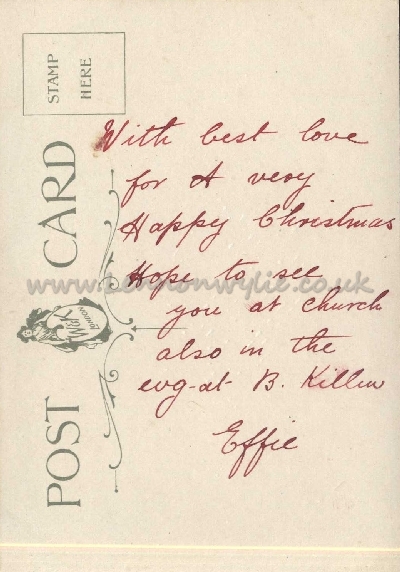 STAMP
HERE
POST CARD
With best love
for A very
Happy Christmas
Hope to see
you at church
also in the
evg-at B. Killen
Effie
www.lennonwylie.co.uk